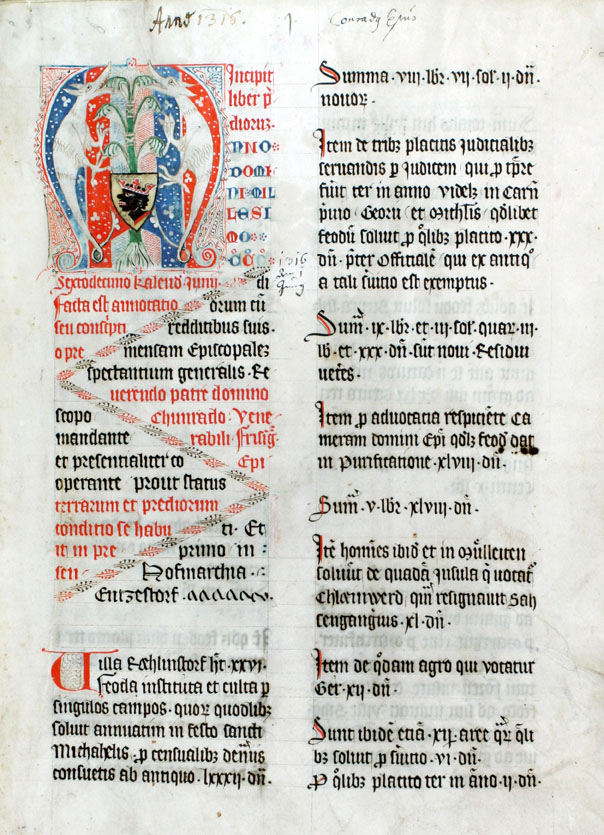 Anno 1316. 1. Conradus Epus
Incipit
liber p̄
diorum:
ANNO
DOMI
NI MIL
LESI
MO
CCC
1316
Sextodecimo kalend Junii di
Facta est annotatio orum cū
seu conscripti redditibus suis.
o pre mensam Episcopalez
spectantium generalis. Re
uerendo patre domino
scopo Chunrado Vene
mandante rabili Frisīg.
et presentialiter co Epi
operante prout status
terrarum et prediorum
conditio se habu ti. Et
it in pre primo in
sen Hofmarchia.
Entzestorf.
Villa Ræhlinstorf h̄t. xxvi.
feoda instituta et culta p
singulos campos. quor quodlibz
soluit annuatim in festo sancti
Michahelis. p censualibz denr̄iis
consuetis ab antiquo. lxxxii. dn̄.
Summa. viii. lbr. vii. sol. ii. dn̄.
nouor.
Item de tribz placitis Judicialibz
seruandis p Judicem qui p tp̄re
fūit ter in anno Videlz in Carn̄
priuio Georii et Michl̄is. qdlibet
feodū soluit p q̄libz placito. xxx.
dn̄. p̄ter Officialē qui ex antiq̄
a tali s̄uitio est exemptus.
Sum̄. ix. lbr. et. iii. sol. quar. iii.
lb. et. xxx. dn̄. sūt noui. Residui
ueтes.
Item p aduocatia respiciēte Ca
meram domini Epī. qdlz feod dat
in Purificatione. xlviii. dn̄.
Sum̄. v. lbr. xlviii. dn̄.
Itē hoīnes ibid et in Mūlleiten
soluūt de quadā Insula q̄ uocat
Chlæinwerd. quā resignauit Sah
sengangius. xl. dn̄.
Item de qdam agro qui uocatur
Ger. xii. dn̄.
Sunt ibidē etiā. xii. aree qr q̄li
bz soluit p s̄uitio. vi. dn̄.
p q̄libz placito ter in āno. ii. dn̄.